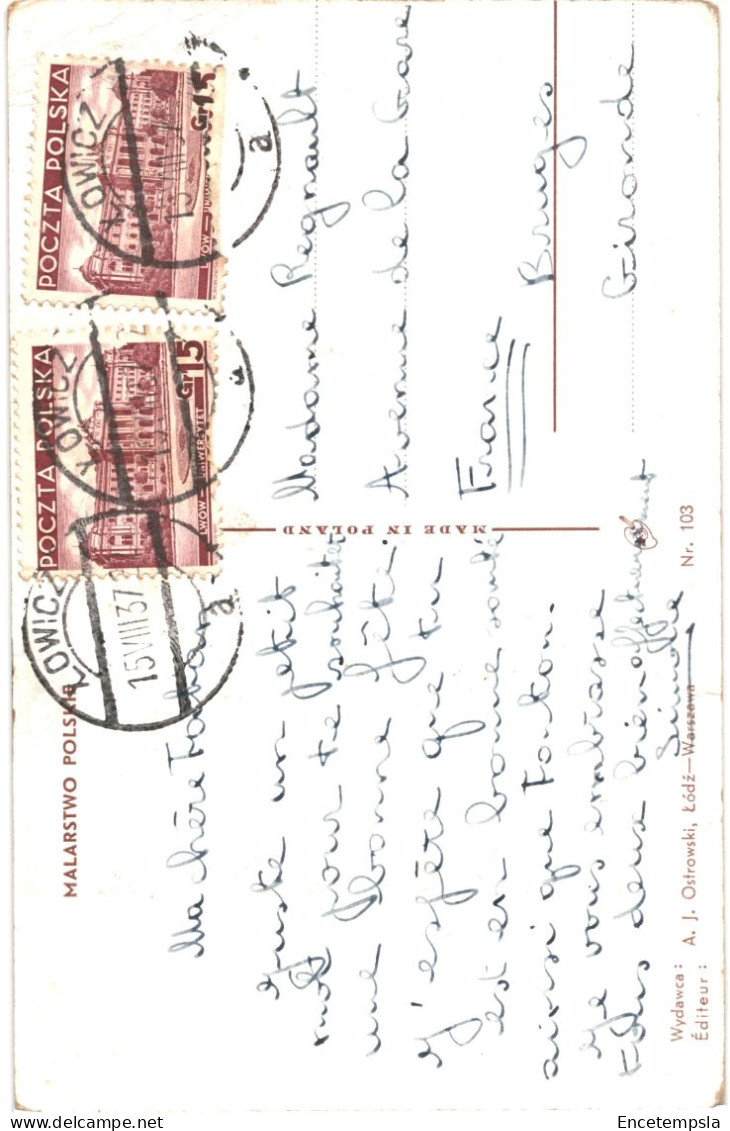 MALARSTWO POLSKIE
Ma chère
Juste un petit
mot pour te souhaiter
une bonne fête.
J'espère que tu
est en bonne santé
ainsi que Tonton.
Je vous embrasse
tous deux bien affectueusement
Simone
Wydawca :
Éditeur :
A. J. Ostrowski, Łódź—Warszawa
Nr. 103
MADE IN POLAND
Madame Regnault
Avenue de la Gare
France
Bruges
Gironde
POCZTA POLSKA
Gr 15
LWÓW — UNIWERSYTET
POCZTA POLSKA
Gr 15
LWÓW —
ŁOWICZ
15 VIII 37
a
ŁOWICZ
ŁOWICZ
a
Encetempsla